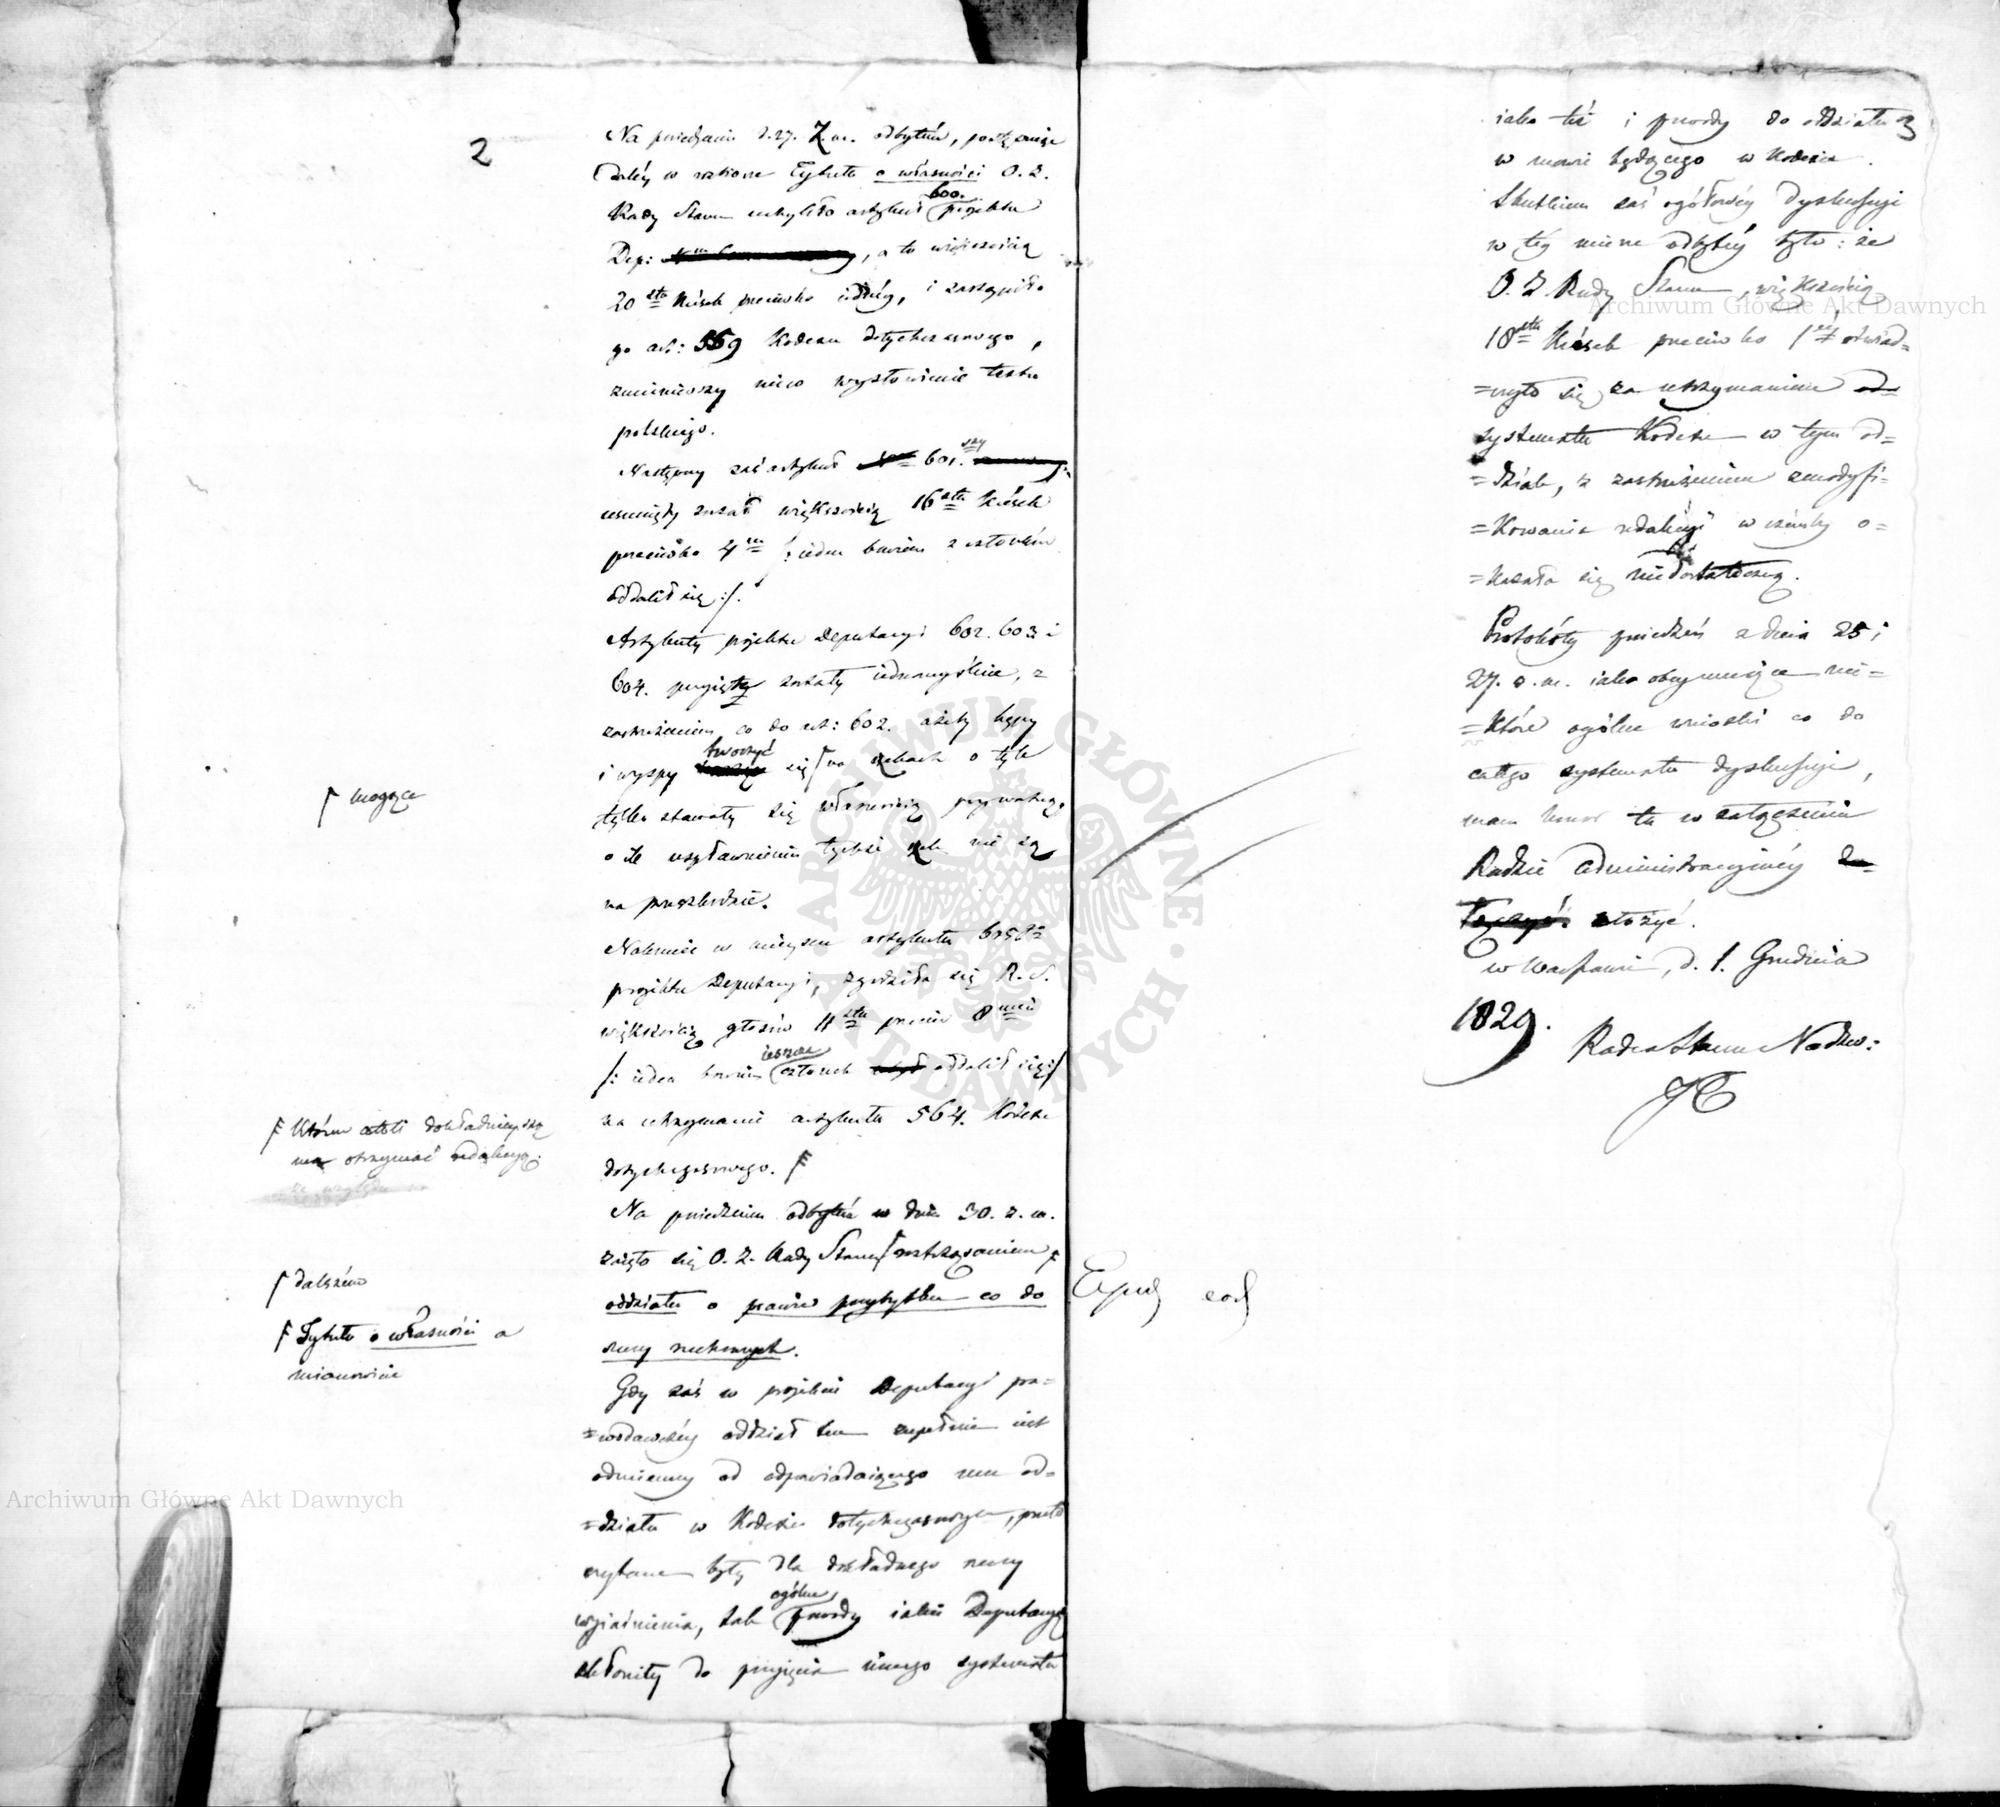 2
Na posiedzeniu d. 27. z. m. odbytém, postępując
daléy w rozbiorze Tytułu o własności O. Z.
Rady Stanu uchyliło artykuł 600. projektu
Dep: , a to większością
20stu kresek przeciwko iednéy, i zastąpiło
go art: 559 Kodexu dotychczasowego,
zmieniwszy nieco wysłowienie textu
polskiego.
Następny zaś artykuł 601.szy
usunięty został większością 16stu kresek
przeciwko 4m /: ieden bowiem z członków
oddalił się :/.
Artykuły projektu Deputacyi 602. 603 i
604. przyięte zostały iednomyślnie, z
zastrzeżeniem co do art: 602. ażeby kępy
i wyspy tworzyć się na rzekach o tyle
mogące
tylko stawały się własnością prywatną,
o ile uspławnieniu tychże rzek nie są
na przeszkodzie.
Nakoniec w mieyscu artykułu 605go
projektu Deputacyi, zgodziła się R. S.
większością głosów 11stu przeciw 8miu
/: ieden bowiem ieszcze członek oddalił się :/
na utrzymanie artykułu 564. Kodexu
dotychczasowego.
któren atoli dokładnieyszą
ma otrzymać redakcyą.
Na posiedzeniu odbytém w dniu 30. z. m.
zaięło się O. Z. Rady Stanu roztrząsaniem
dalszém
Tytułu o własności a
mianowicie
oddziału o prawie przybytku co do
rzeczy ruchomych.
Gdy zaś w projekcie Deputacyi pra=
=wodawczéy oddział ten zupełnie iest
odmienny od odpowiadaiącego mu od=
=działu w Kodexie dotychczasowym, przeto
czytane były dla dokładnego rzeczy
wyiaśnienia, tak ogólne powody iakie Deputacyą
skłoniły do przyięcia innego systematu
3
iako téż i powody do oddziału
w mowie będącego w Kodexie.
Skutkiem zaś ogółowéy dyskussyi
w téy mierze odbytéy było: że
O. Z. Rady Stanu, większością
18stu kresek przeciwko 1éy oświad=
=czyło się za utrzymaniem
systematu Kodexu w tym od=
=dziale, z zastrzeżeniem zmodyfi=
=kowania redakcyi w iéby o=
=kazała się niedostateczną.
Protokóły posiedzeń z dnia 25 i
27. z. m. iako obeymuiące nie=
=które ogólne wnioski co do
całego systematu dyskussyi,
mam honor tu w załączeniu
Radzie Administracyinéy
złożyć.
w Warszawie, d. 1. Grudnia
1829.
Radca Stanu Nadzw: